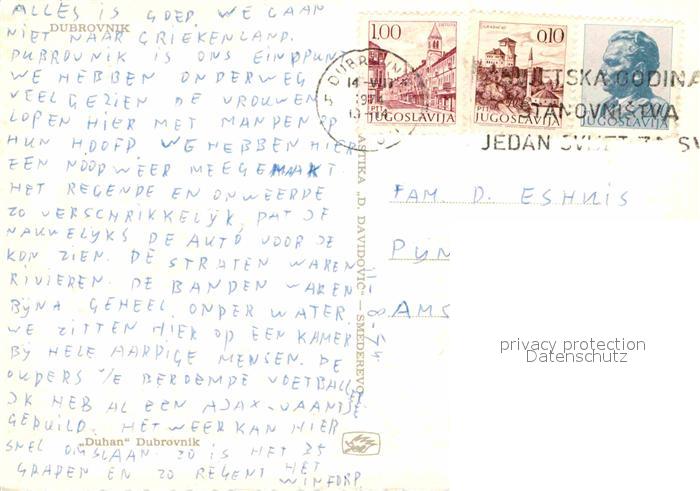 ALLES IS GOED. WE GAAN
NIET NAAR GRIEKENLAND.
DUBROVNIK
DUBROVNIK IS ONS EINDPUNT
WE HEBBEN ONDERWEG
VEEL GEZIEN DE VROUWEN
LOPEN HIER MET MANDEN OP
HUN HOOFD WE HEBBEN HIER
EEN NOODWEER MEEGEMAAKT
HET REGENDE EN ONWEERDE
ZO VERSCHRIKKELYK, DAT JE
NAUWELYKS DE AUTO VOOR JE
KON ZIEN. DE STRATEN WAREN
RIVIEREN. DE BANDEN WAREN
BYNA GEHEEL ONDER WATER
WE ZITTEN HIER OP EEN KAMER
BY HELE AARDIGE MENSEN. DE
OUDERS V/E BEROEMDE VOETBALLER
IK HEB AL EEN AJAX-VAANTJE
GERUILD. HET WEER KAN HIER
„Duhan" Dubrovnik
SNEL OMSLAAN. ZO IS HET 35
GRADEN EN ZO REGENT HET
WINFORD
ASTIKA „D. DAVIDOVIĆ" — SMEDEREVO
1.00
PTT JUGOSLAVIJA
0.10
PTT JUGOSLAVIJA
JUGOSLAVIJA
DUBROVNIK
14-VIII
SVJETSKA GODINA
STANOVNIŠTVA
JEDAN SVIJET ZA SV
FAM. D. ESHUIS
PYN
AMS
privacy protection
Datenschutz